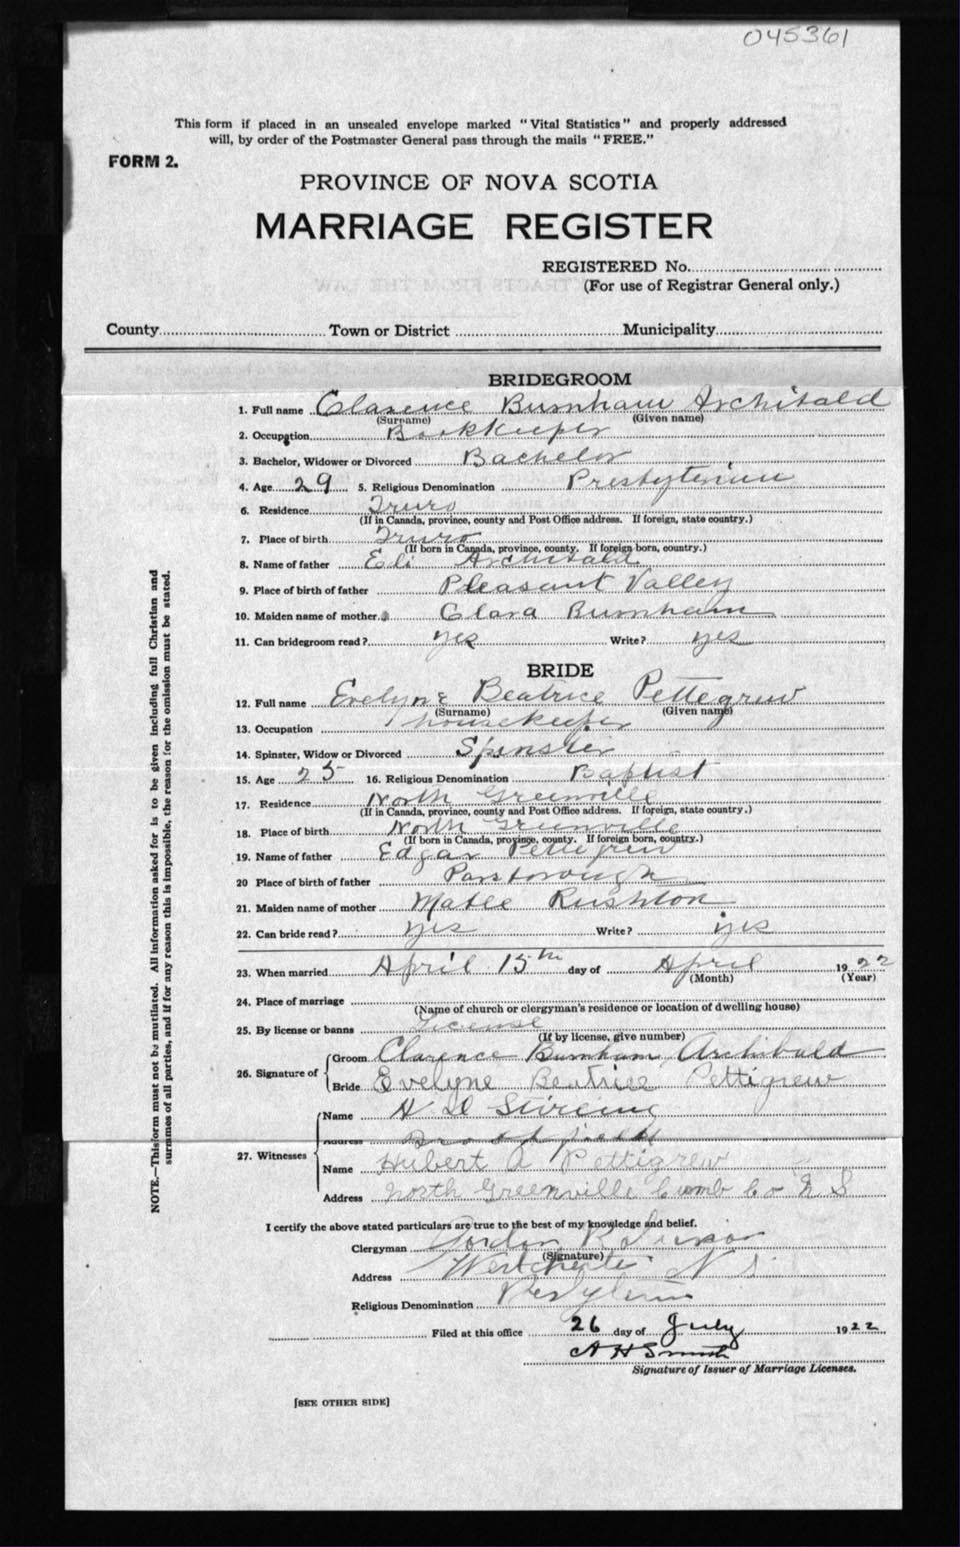 045361
This form if placed in an unsealed envelope marked "Vital Statistics" and properly addressed
will, by order of the Postmaster General pass through the mails "FREE."
FORM 2.
PROVINCE OF NOVA SCOTIA
MARRIAGE REGISTER
REGISTERED No.
(For use of Registrar General only.)
County Town or District Municipality
BRIDEGROOM
1. Full name Clarence Burnham Archibald
(Surname) (Given name)
2. Occupation Bookkeeper
3. Bachelor, Widower or Divorced Bachelor
4. Age 29 5. Religious Denomination Presbyterian
6. Residence Truro
(If in Canada, province, county and Post Office address. If foreign, state country.)
7. Place of birth Truro
(If born in Canada, province, county. If foreign born, country.)
8. Name of father Eli Archibald
9. Place of birth of father Pleasant Valley
10. Maiden name of mother Clara Burnham
11. Can bridegroom read? yes Write? yes
BRIDE
12. Full name Evelyne Beatrice Pettegrew
(Surname) (Given name)
13. Occupation housekeeper
14. Spinster, Widow or Divorced Spinster
15. Age 25 16. Religious Denomination Baptist
17. Residence North Greenville
(If in Canada, province, county and Post Office address. If foreign, state country.)
18. Place of birth North Greenville
(If born in Canada, province, county. If foreign born, country.)
19. Name of father Edgar Pettigrew
20 Place of birth of father Parsborough
21. Maiden name of mother Matle Rushton
22. Can bride read? yes Write? yes
23. When married April 15th day of April 1922
(Month) (Year)
24. Place of marriage
(Name of church or clergyman's residence or location of dwelling house)
25. By license or banns License
(If by license, give number)
26. Signature of Groom Clarence Burnham Archibald
Bride Evelyne Beatrice Pettigrew
27. Witnesses Name H D Stirling
Address Brookfield
Name Hubert A Pettigrew
Address North Greenville Cumb Co N S
I certify the above stated particulars are true to the best of my knowledge and belief.
Clergyman Gordon R
(Signature)
Address Westchester N S
Religious Denomination Presbyterian
Filed at this office 26 day of July 1922
A H Smith
Signature of Issuer of Marriage Licenses.
[SEE OTHER SIDE]
NOTE.—This form must not be mutilated. All information asked for is to be given including full Christian and
surnames of all parties, and if for any reason this is impossible, the reason for the omission must be stated.